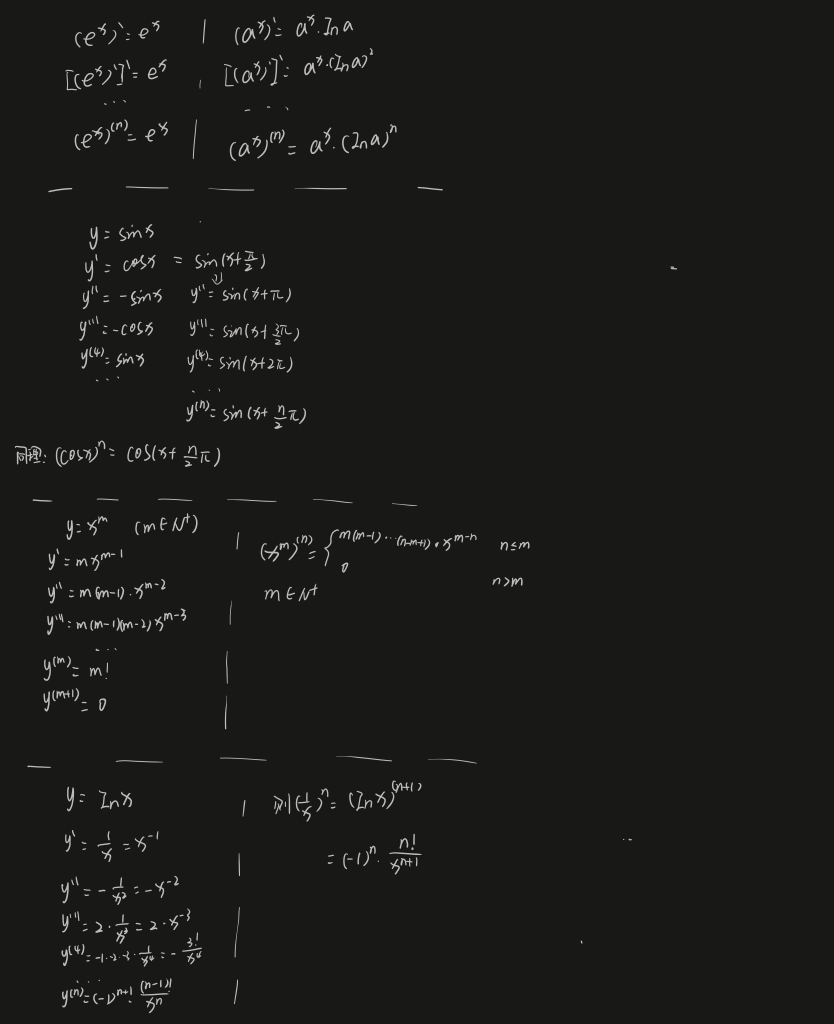 (eˣ)' = eˣ | (aˣ)' = aˣ·ln a
[(eˣ)']' = eˣ | [(aˣ)']' = aˣ·(ln a)²
... | ...
(eˣ)⁽ⁿ⁾ = eˣ | (aˣ)⁽ⁿ⁾ = aˣ·(ln a)ⁿ
y = sinx
y' = cosx = sin(x+π/2)
⇓
y'' = -sinx y'' = sin(x+π)
y''' = -cosx y''' = sin(x+3π/2)
y⁽⁴⁾ = sinx y⁽⁴⁾ = sin(x+2π)
... ...
y⁽ⁿ⁾ = sin(x+n/2 π)
同理: (cosx)ⁿ = cos(x+n/2 π)
y = xᵐ (m∈N⁺)
y' = mxᵐ⁻¹
y'' = m(m-1)·xᵐ⁻²
y''' = m(m-1)(m-2)xᵐ⁻³
...
y⁽ᵐ⁾ = m!
y⁽ᵐ⁺¹⁾ = 0
(xᵐ)⁽ⁿ⁾ = { m(m-1)···(n-m+1)·xᵐ⁻ⁿ n≤m
0 n>m
m∈N⁺
y = ln x
y' = 1/x = x⁻¹
y'' = -1/x² = -x⁻²
y''' = 2·1/x³ = 2·x⁻³
y⁽⁴⁾ = -1·2·3·1/x⁴ = -3!/x⁴
...
y⁽ⁿ⁾ = (-1)ⁿ⁺¹·(n-1)!/xⁿ
则(1/x)ⁿ = (ln x)⁽ⁿ⁺¹⁾
= (-1)ⁿ·n!/xⁿ⁺¹